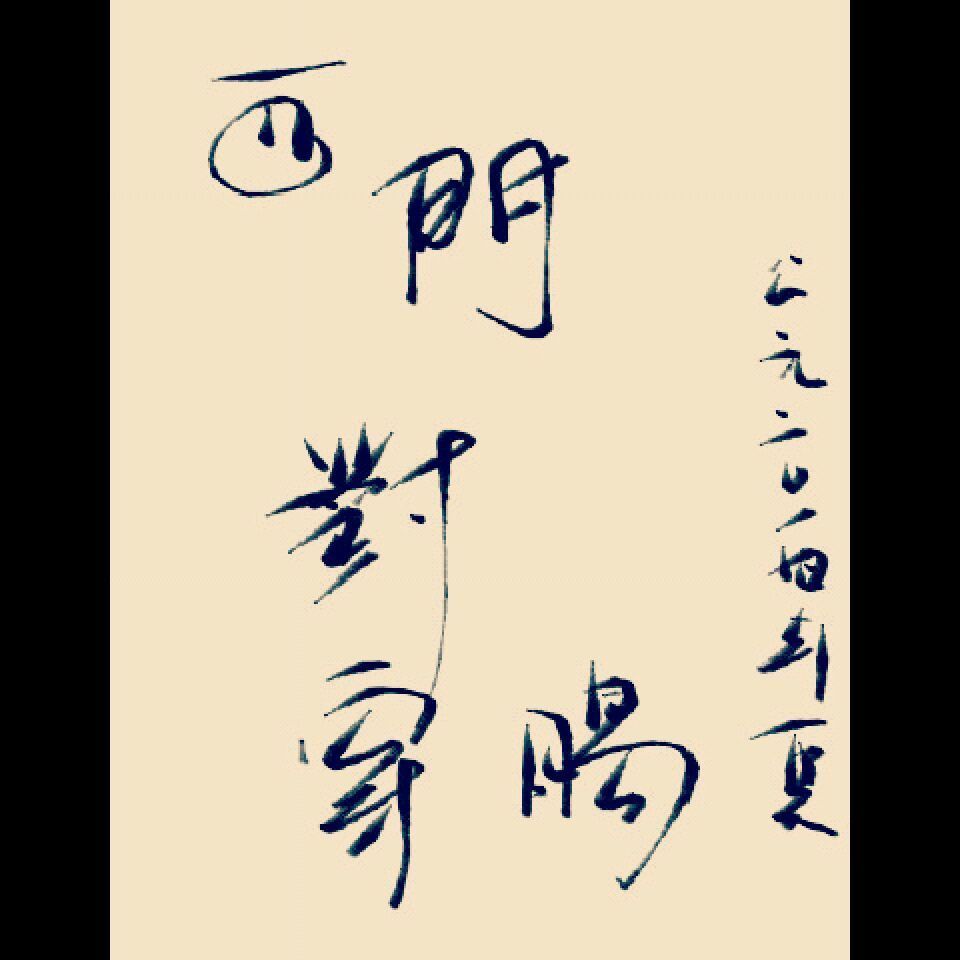 西門
對
穿腸
公元二〇一四年夏